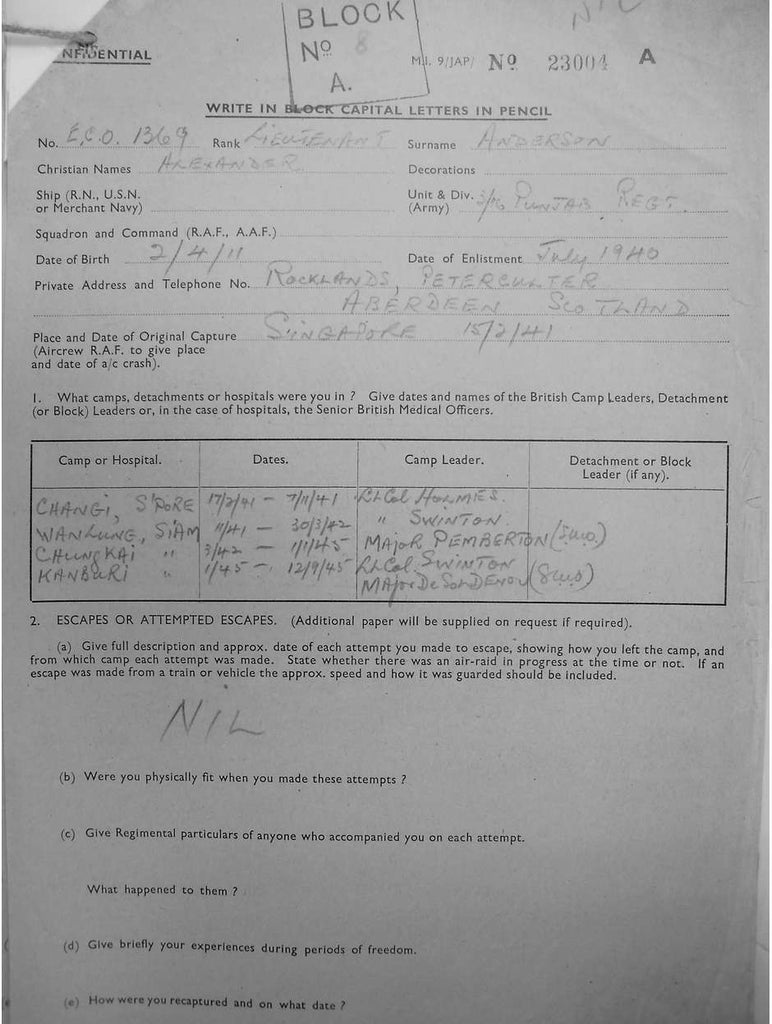 BLOCK
Nº 8
A.
NIL
NFIDENTIAL
M.I. 9/JAP/ Nº 23004 A
WRITE IN BLOCK CAPITAL LETTERS IN PENCIL
No. E.C.O. 1369 Rank LIEUTENANT Surname ANDERSON
Christian Names ALEXANDER Decorations
Ship (R.N., U.S.N. or Merchant Navy)
Unit & Div. (Army) PUNJAB REGT.
Squadron and Command (R.A.F., A.A.F.)
Date of Birth 2/4/11 Date of Enlistment July 1940
Private Address and Telephone No. ROCKLANDS, PETERCULTER
ABERDEEN SCOTLAND
Place and Date of Original Capture SINGAPORE 15/2/41
(Aircrew R.A.F. to give place
and date of a/c crash).
1. What camps, detachments or hospitals were you in ? Give dates and names of the British Camp Leaders, Detachment
(or Block) Leaders or, in the case of hospitals, the Senior British Medical Officers.
Camp or Hospital. Dates. Camp Leader. Detachment or Block
Leader (if any).
CHANGI, S'PORE 17/2/41 - 7/11/41 Lt Col HOLMES.
WANLUNG, SIAM 11/41 - 30/3/42 " SWINTON.
CHUNGKAI " 3/42 - 1/1/45 MAJOR PEMBERTON
KANBURI " 1/45 - 12/9/45 Lt Col. SWINTON
MAJOR
2. ESCAPES OR ATTEMPTED ESCAPES. (Additional paper will be supplied on request if required).
(a) Give full description and approx. date of each attempt you made to escape, showing how you left the camp, and
from which camp each attempt was made. State whether there was an air-raid in progress at the time or not. If an
escape was made from a train or vehicle the approx. speed and how it was guarded should be included.
NIL
(b) Were you physically fit when you made these attempts ?
(c) Give Regimental particulars of anyone who accompanied you on each attempt.
What happened to them ?
(d) Give briefly your experiences during periods of freedom.
(e) How were you recaptured and on what date ?